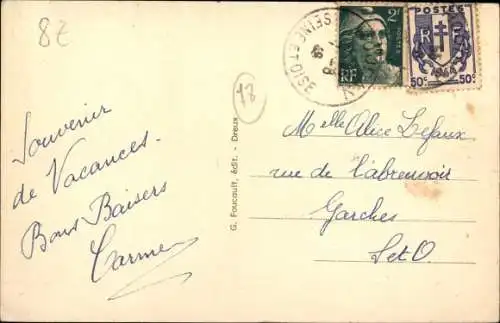 8Z
Souvenir
de Vacances.
Bons Baisers
Carmen
G. Foucault, édit. - Dreux
13
SEINE ET OISE
2F
POSTES
RF
POSTES
RF
1944
50c 50c
Melle Alice Lefaux
rue de l'abreuvoir
Garches
S et O.